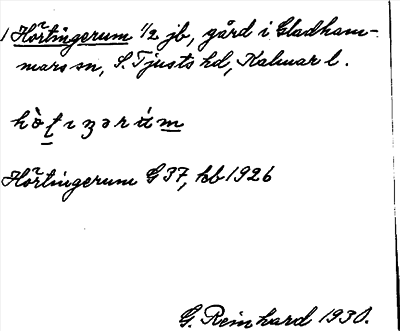 1 Hörtingerum 1/2 jb, gård i Gladham-
mars sn, S. Tjusts hd, Kalmar l.
Hörtingerum G 37, kb 1926
G. Reinhard 1930.